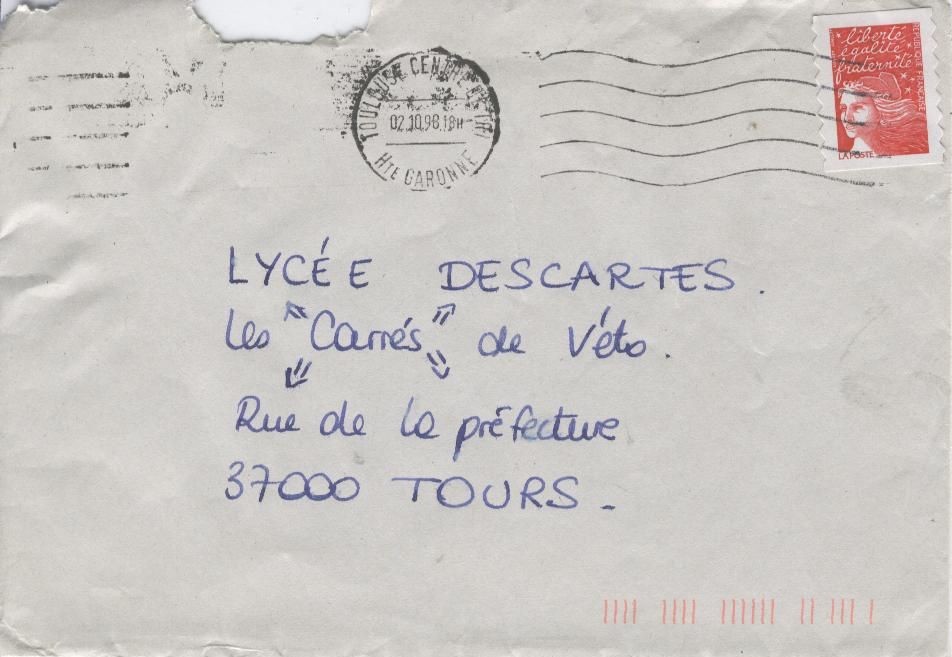 liberté
égalité
fraternité
RÉPUBLIQUE FRANÇAISE
LA POSTE
TOULOUSE CENTRE
02.10.98.18H
HTE GARONNE
LYCÉE DESCARTES.
Les "Carrés" de Véto.
Rue de la préfecture
37000 TOURS.